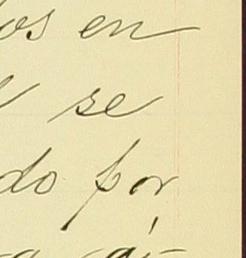 os en
se
do por